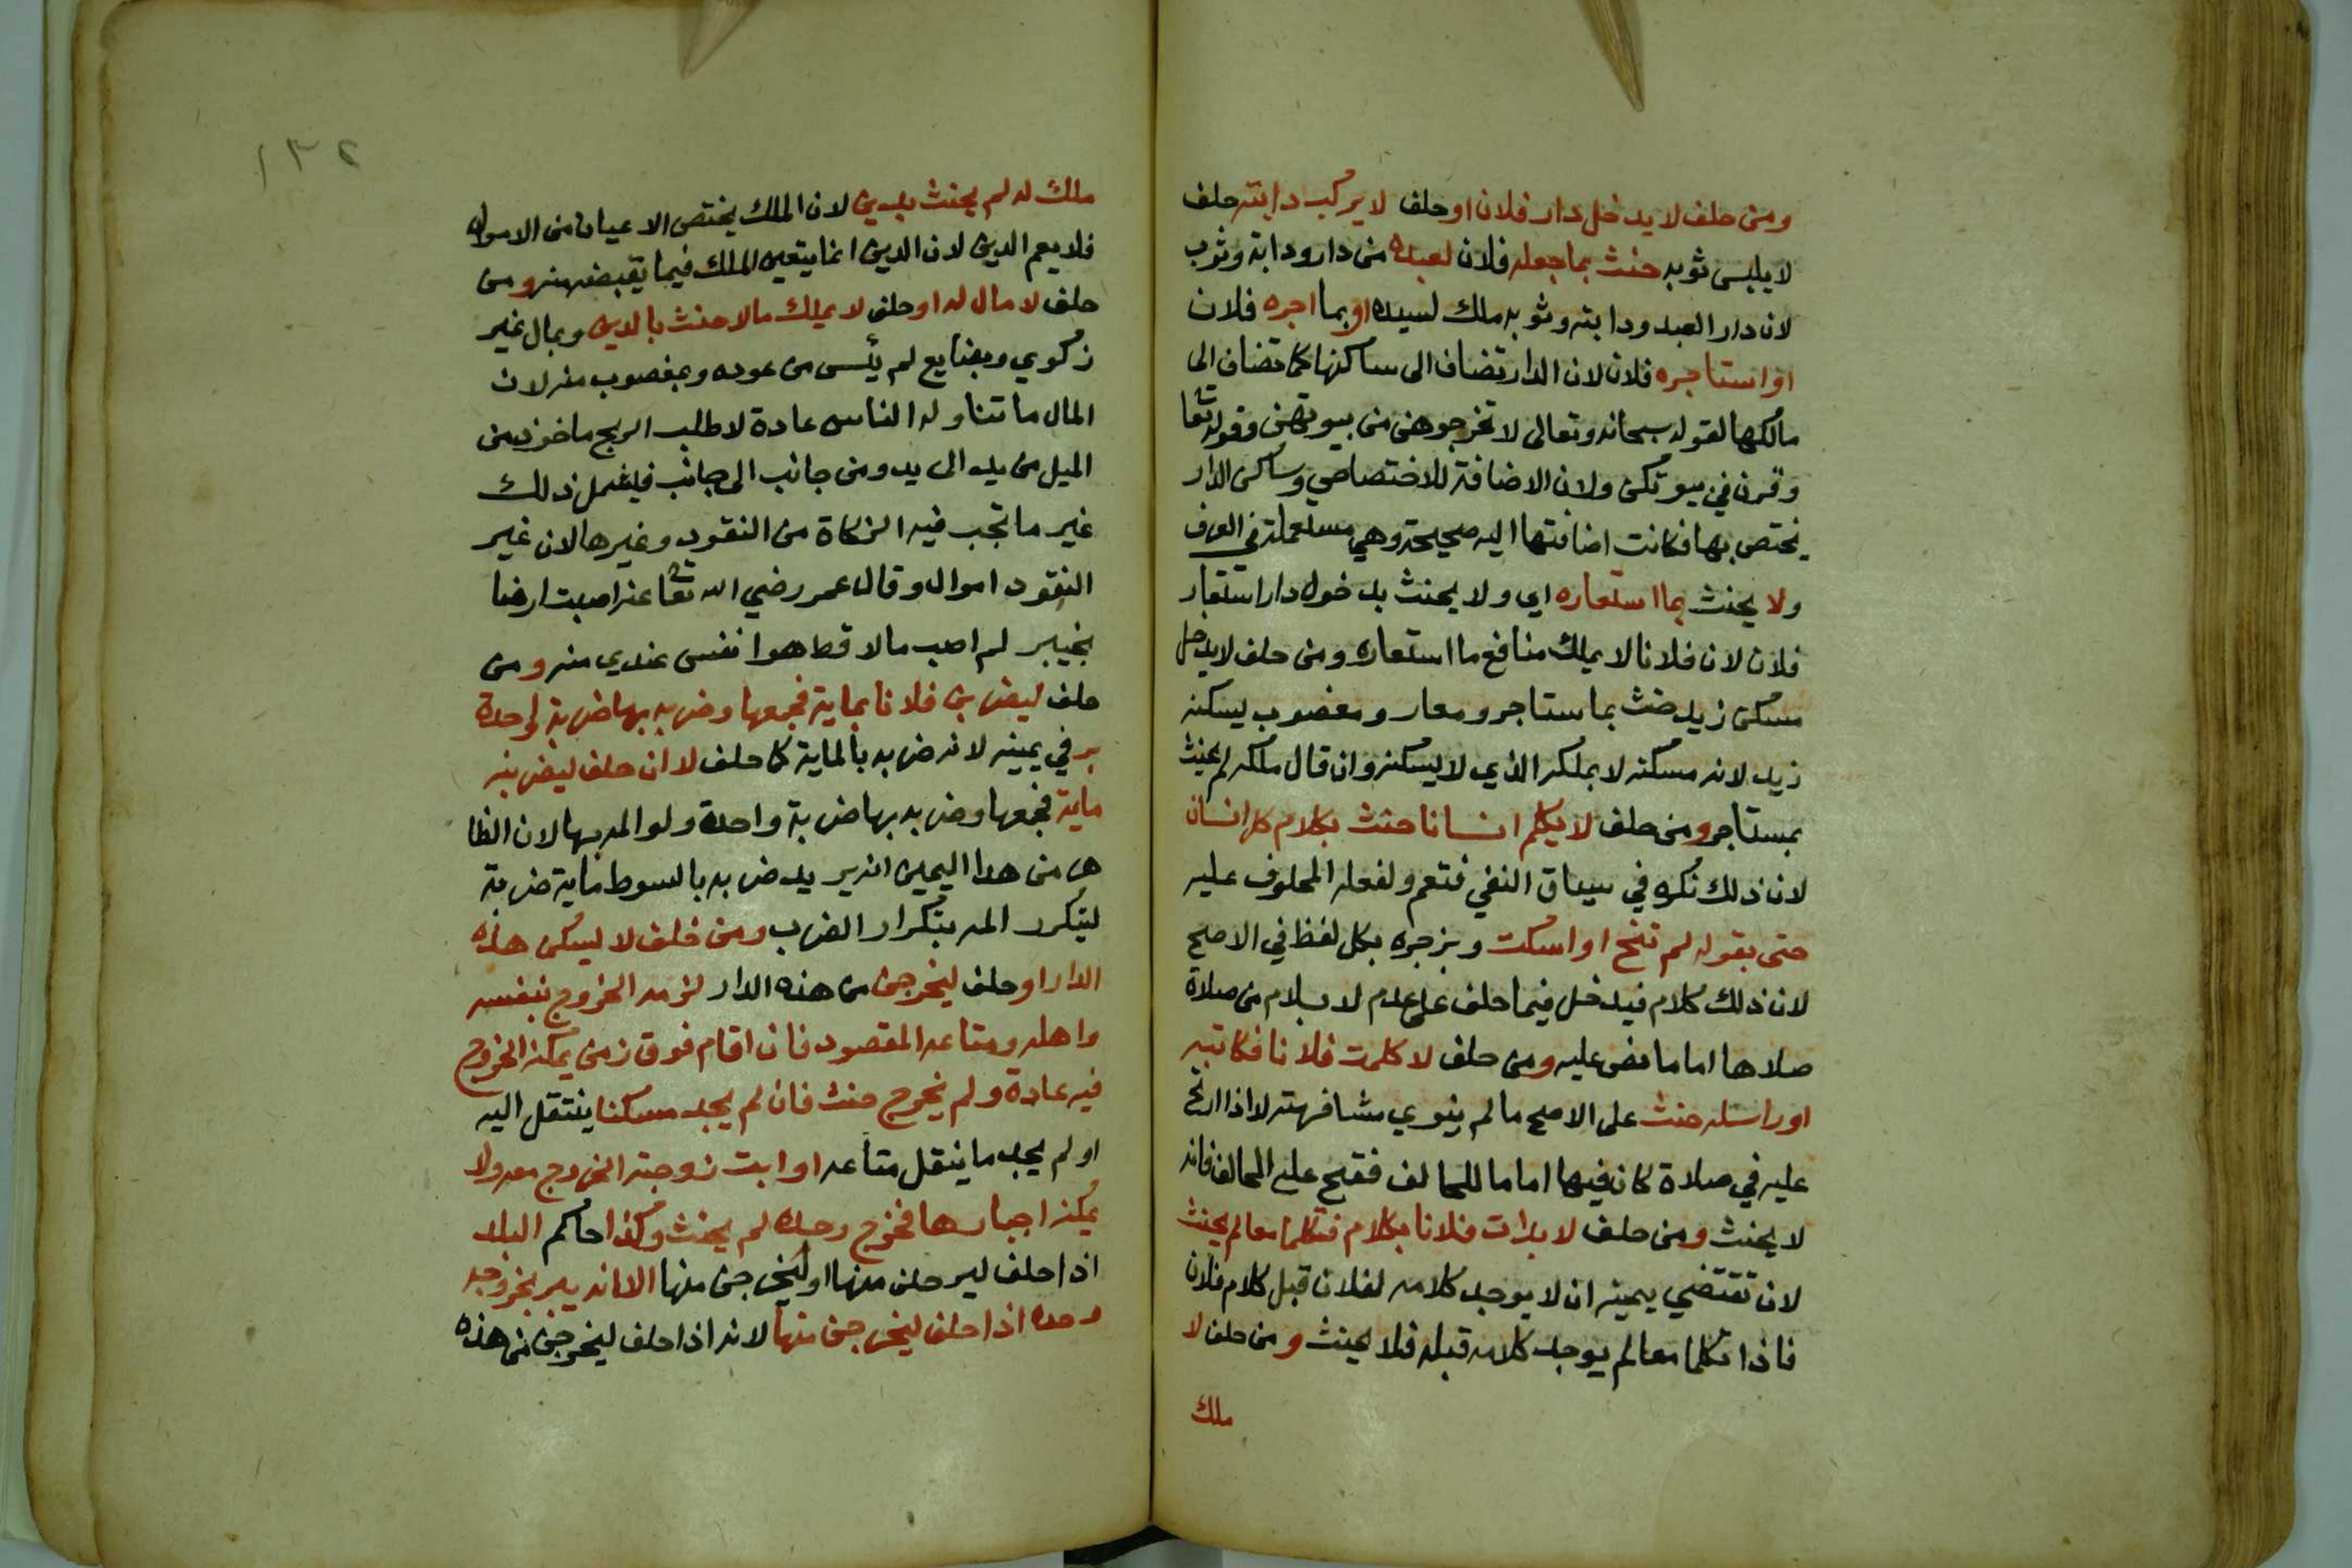 ومن حلف لا يدخل دار فلان او حلف لا يركب دابته حلف
لا يلبس ثوبه حنث بما جعله فلان لعبده من دار ودابة وثوب
لان دار العبد ودابته وثوبه ملك لسيده او بما اجره فلان
او استاجره فلان لان الدار تضاف الى ساكنها كما تضاف الى
مالكها لقوله سبحانه وتعالى لا تخرجوهن من بيوتهن وقوله تعا
وقرن في بيوتكن ولان الاضافة للاختصاص وساكن الدار
يختص بها فكانت اضافتها اليه صحيحة وهي مستعملة في العرف
ولا يحنث بما استعاره اي ولا يحنث بدخول دار استعار
فلان لان فلانا لا يملك منافع ما استعاره ومن حلف لا يدخل
مسكن زيد حنث بما ستاجر ومعار ومغصوب يسكنه
زيد لانه مسكنه لا بملكه الذي لا يسكنه وان قال ملكه لم يحنث
بمستاجر ومن حلف لا يكلم انسانا حنث بكلام كل انسان
لان ذلك نكره في سياق النفي فتعم ولفعله المحلوف عليه
حتى بقوله لم تنح او اسكت وبزجره بكل لفظ في الاصح
لان ذلك كلام فيدخل فيما حلف على عدم لا بسلام من صلاة
صلاها اماما نص عليه ومن حلف لا كلمت فلانا فكاتبه
او راسله حنث على الاصح ما لم ينوي مشافهته لا اذا ارتج
عليه في صلاة كان فيها اماما للحالف ففتح عليه الحالف فانه
لا يحنث ومن حلف لا بدات فلانا بكلام فتكلما معا لم يحنث
لان تقتضي يمينه ان لا يوجد كلامه لفلان قبل كلام فلان
فاذا تكلما معا لم يوجد كلامه قبله فلا يحنث ومن حلف لا
ملك
١٣٢
ملك له لم يحنث بدين لان الملك يختص الاعيان من الاموال
فلا يعم الدين لان الدين انما يتعين الملك فيما يقبضه منه ومن
حلف لا مال له او حلف لا يملك مالا حنث بالدين وبمال غير
زكوي وبضايع لم يئس من عوده وبمغصوب منه لان
المال ما تناوله الناس عادة لا طلب الربح ماخوذ من
الميل من يد الى يد ومن جانب الى جانب فيشمل ذلك
غير ما تجب فيه الزكاة من النقود وغيرها لان غير
النقود اموال وقال عمر رضي الله تعا عنه اصبت ارضا
بخيبر لم اصب مالا قط هو انفس عندي منه ومن
حلف ليضربن فلانا بماية فجمعها وضربه بها ضربة واحدة
بر في يمينه لانه ضربه بالماية كما حلف لا ان حلف ليضربنه
ماية فجمعها وضربه بها ضربة واحدة ولو المه بها لان الظا
هر من هذا اليمين انه يريد ضربه بالسوط ماية ضربة
ليتكرر المه بتكرار الضرب ومن حلف لا ليسكن هذه
الدار او حلف ليخرجن من هذه الدار لزمه الخروج بنفسه
واهله ومتاعه المقصود فان اقام فوق زمن يمكنه الخروج
فيه عادة ولم يخرج حنث فان لم يجد مسكنا ينتقل اليه
او لم يجد ما ينقل متاعه او ابت زوجته الخروج معه ولا
يمكنه اجبارها فخرج وحده لم يحنث وكذا حاكم البلد
اذا حلف ليرحلن منها او ليخرجن منها الا انه يبر بخروجه
وحده اذا حلف ليخرجن منها لانه اذا حلف ليخرجن من هذه